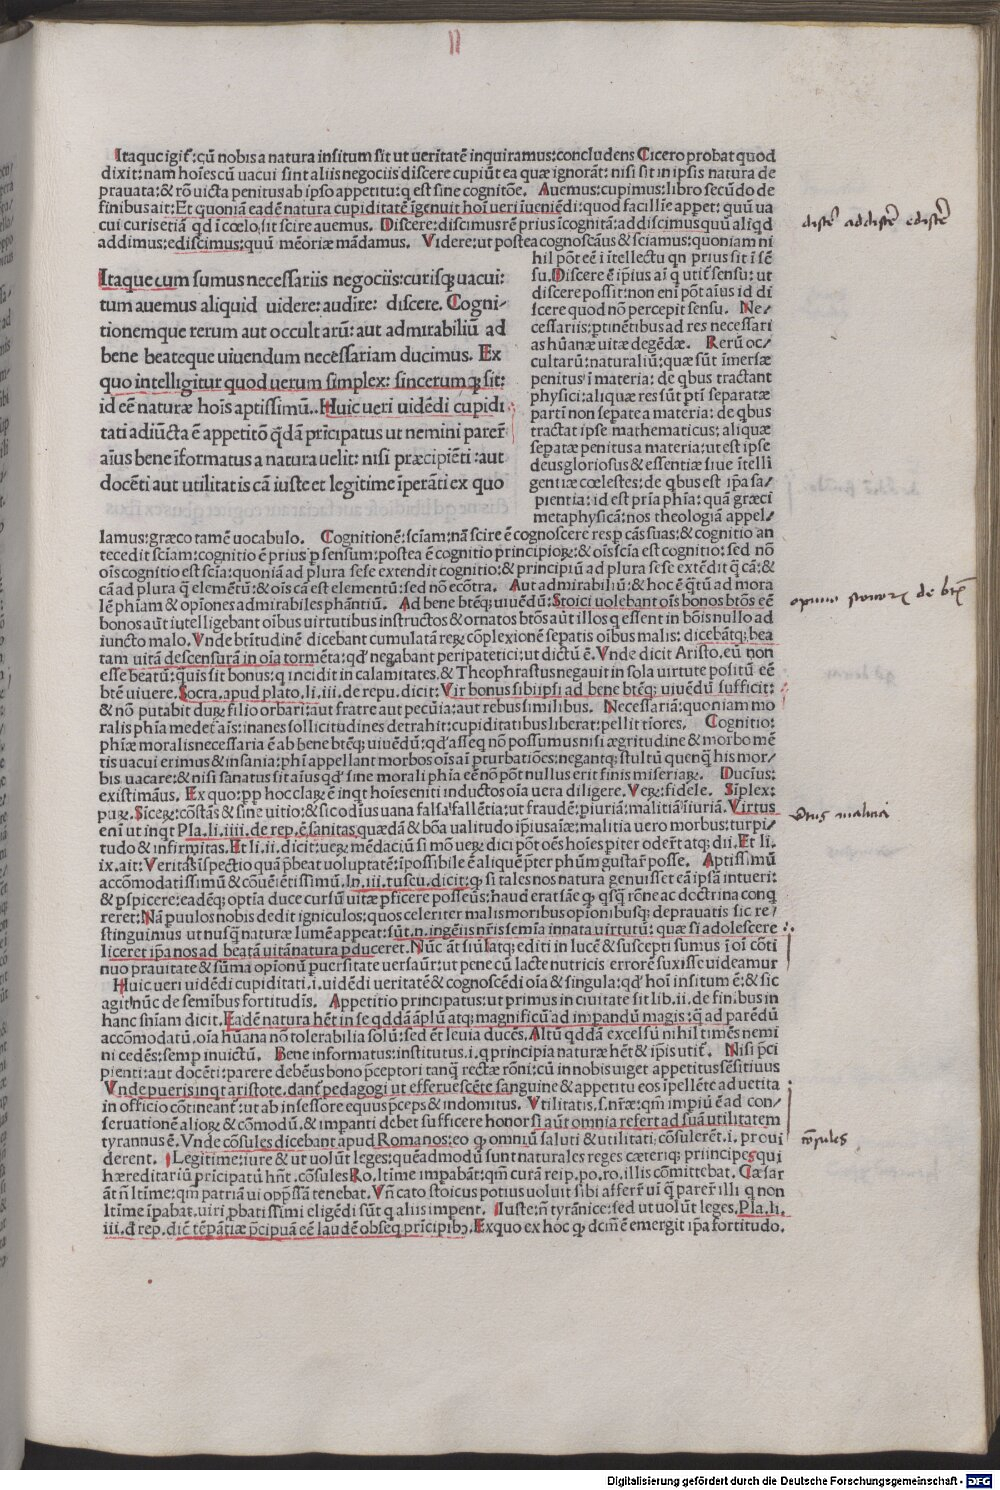 II
Itaque igit̃: cũ nobis a natura insitum sit ut ueritatẽ inquiramus: concludens Cicero probat quod
dixit: nam hoĩes cũ uacui sint aliis negociis discere cupiũt ea quæ ignorãt: nisi sit in ipsis natura de
prauata: & rõ uicta penitus ab ipso appetitu: q est sine cognitõe. Auemus: cupimus: libro secũdo de
finibus ait: Et quoniã eadẽ natura cupiditatẽ ĩgenuit hoĩ ueri ĩueniẽdi: quod facillĩe appet: quũ ua
cui curis etiã qd ĩ cœlo sit scire auemus. Discere: discimus rẽ prius ĩcognitã: addiscimus quũ aliqd
addimus: ediscimus: quũ mẽoriæ mãdamus. Videre: ut postea cognoscãus & sciamus: quoniam ni
hil põt eẽ ĩ ĩtellectu qn prius sit ĩ sẽ
su. Discere ẽ ip̃ius aĩ q utit̃ sensu: ut
discere possit: non enĩ põt aĩus id di
scere quod nõ percepit sensu. Ne/
cessariis: ptinẽtibus ad res necessari
as hũanæ uitæ degẽdæ. Rerũ oc/
cultarũ: naturaliũ: quæ sũt ĩmersæ
penitus ĩ materia: de qbus tractant
physici: aliquæ res sũt ptĩ separatæ
partĩ non sepatæ a materia: de qbus
tractat ipse mathematicus: aliquæ
sepatæ penitus a materia: ut est ipse
deus gloriosus & essentiæ siue ĩtelli
gentiæ cœlestes: de qbus est ip̃a sa/
pientia: id est prĩa phĩa: quã græci
metaphysicã: nos theologiã appel/
Itaque cum sumus necessariis negociis: curisq; uacui:
tum auemus aliquid uidere: audire: discere. Cogni/
tionemque rerum aut occultarũ: aut admirabiliũ ad
bene beateque uiuendum necessariam ducimus. Ex
quo intelligitur quod uerum simplex: sincerumq; sit:
id eẽ naturæ hoĩs aptissimũ. Huic ueri uidẽdi cupidi
tati adiũcta ẽ appetitõ q̃dã prĩcipatus ut nemini parer̃
aĩus bene ĩformatus a natura uelit: nisi præcipiẽti: aut
docẽti aut utilitatis cã iuste et legitime ĩperãti ex quo
lamus: græco tamẽ uocabulo. Cognitionẽ: sciam: nã scire ẽ cognoscere resp cãs suas: & cognitio an
tecedit sciam: cognitio ẽ prius p sensum: postea ẽ cognitio principioꝝ: & oĩs scia est cognitio: sed nõ
oĩs cognitio est scia: quoniã ad plura sese extendit cognitio: & principiũ ad plura sese extẽdit q̃ cã: &
cã ad plura q̃ elemẽtũ: & oĩs cã est elementũ: sed nõ ecõtra. Aut admirabiliũ: & hoc ẽ q̃tũ ad mora
lẽ phĩam & opĩones admirabiles phãntiũ. Ad bene btẽq; uiuẽdũ: Stoici uolebant oĩs bonos btõs eẽ
bonos aũt iutelligebant oĩbus uirtutibus instructos & ornatos btõs aũt illos q essent in bõis nullo ad
iuncto malo. Vnde btĩtudinẽ dicebant cumulatã reꝝ cõplexionẽ sepatis oĩbus malis: dicebãtq; bea
tam uitã descensurã in oĩa tormẽta: qd̃ negabant peripatetici: ut dictũ ẽ. Vnde dicit Aristo. eũ non
esse beatũ: quis sit bonus: q incidit in calamitates. & Theophrastus negauit in sola uirtute positũ eẽ
btẽ uiuere. Socra. apud plato. li. iii. de repu. dicit: Vir bonus sibi ipsi ad bene btẽq; uiuẽdũ sufficit:
& nõ putabit duꝝ filio orbari: aut fratre aut pecũia: aut rebus similibus. Necessariã: quoniam mo
ralis phĩa medet̃ aĩs: inanes sollicitudines detrahit: cupiditatibus liberat: pellit tĩores. Cognitio:
phĩæ moralis necessaria ẽ ab bene btẽq; uiuẽdũ: qd̃ asseq nõ possumus nisi ægritudine & morbo mẽ
tis uacui erimus & insania: phĩ appellant morbos oĩs aĩ pturbatiões: negantq; stultũ quenq̃ his mor/
bis uacare: & nisi sanatus sit aĩus qd̃ sine morali phĩa eẽ nõ põt nullus erit finis miseriaꝝ. Ducĩus:
existimãus. Ex quo: pp hoc claꝝ ẽ inqt hoĩes eniti inductos oĩa uera diligere. Veꝝ: fidele. Sĩplex:
puꝝ. Sĩceꝝ: cõstãs & sine uitio: & sic odĩus uana falsa fallẽtia: ut fraudẽ: piuriã: malitiã ĩiuriã. Virtus
enĩ ut inqt Pla. li. iiii. de rep. ẽ sanitas quædã & bõa ualitudo ip̃ius aĩæ: malitia uero morbus: turpi/
tudo & infirmitas. Et li. ii. dicit: ueꝝ mẽdaciũ si mõ ueꝝ dici põt oẽs hoĩes piter oder̃t atq; dii. Et li.
ix. ait: Veritatĩs ĩspectio quã p̃beat uoluptatẽ: ĩpossibile ẽ aliquẽ p̃ter phũm gustar̃ posse. Aptissimũ
accõmodatissimũ & cõueĩẽtissimũ. In. iii. tuscu. dicit: q si tales nos natura genuisset eã ip̃sã intueri:
& pspicere: eadẽq; optĩa duce cursũ uitæ pficere possẽus: haud erat sãe q qsq̃ rõne ac doctrina conq
reret: Nã puulos nobis dedit igniculos: quos celeriter malis moribus opĩonibusq; deprauatis sic re/
stinguimus ut nusq̃ naturæ lumẽ appeat: sũt. n. ingẽiis nr̃is semĩa innata uirtutũ: quæ si adolescere
liceret ip̃a nos ad beatã uitã natura pduceret. Nũc ãt siũl atq; editi in lucẽ & suscepti sumus ĩ oĩ cõti
nuo prauitate & sũma opĩonũ puersitate uersaũr: ut pene cũ lacte nutricis errorẽ suxisse uideamur
Huic ueri uidẽdi cupiditati. i. uidẽdi ueritatẽ & cognoscẽdi oĩa & singula: qd̃ hoĩ insitum ẽ: & sic
agit̃ nũc de semĩbus fortitudĩs. Appetitio principatus: ut primus in ciuitate sit lib. ii. de finibus in
hanc sn̄iam dicit. Eadẽ natura hẽt in se qddã ãplũ atq; magnificũ ad impandũ magis: q̃ ad parẽdũ
accõmodatũ, oĩa hũana nõ tolerabilia solũ: sed ẽt leuia ducẽs. Altũ qddã excelsũ nihil timẽs nemi
ni cedẽs: semp inuictũ. Bene informatus: institutus. i. q principia naturæ hẽt & ip̃is utit̃. Nisi p̃ci
pienti: aut docẽti: parere debẽus bono p̃ceptori tanq̃ rectæ rõni: cũ in nobis uiget appetitus sẽsitiuus
Vnde pueris inqt aristote. dant̃ pedagogi ut efferuescẽte sanguine & appetitu eos ĩpellẽte ad uetita
in officio cõtineant̃: ut ab insessore equus p̃ceps & indomitus. Vtilitatis. s. nr̃æ: qm̃ impiũ ẽ ad con/
seruationẽ alioꝝ & cõmodũ. & impanti debet sufficere honor si aũt omnia refert ad suã utilitatem
tyrannus ẽ. Vnde cõsules dicebant apud Romanos: eo q omniũ saluti & utilitati: cõsulerẽt. i. proui
derent. Legitime: iure & ut uolũt leges: quẽadmodũ sunt naturales reges cæteriq; priincipes qui
hæreditariũ prĩcipatũ hñt. cõsules Ro. ltĩme impabãt: qm̃ curã reip. po. ro. illis cõmittebat. Cæsar
ãt ñ ltĩme: qm̃ patriã ui opp̃ssã tenebat. Vñ cato stoicus potius uoluit sibi afferr̃ uĩ q̃ parer̃ illi q non
ltĩme ĩpabat. uiri pbatissimi eligẽdi sũt q aliis impent. Iuste: ñ tyrãnice: sed ut uolũt leges. Pla. li.
iii. d̃ rep. dic̃ tẽpãtiæ p̃cipuã eẽ laudẽ obseq prĩcipibꝰ. Ex quo ex hoc q dcm̃ ẽ emergit ip̃a fortitudo.
discẽ addiscẽ ediscẽ
opinio stoicoꝝ de btĩ
virtus malitia
cõsules
Digitalisierung gefördert durch die Deutsche Forschungsgemeinschaft - DFG